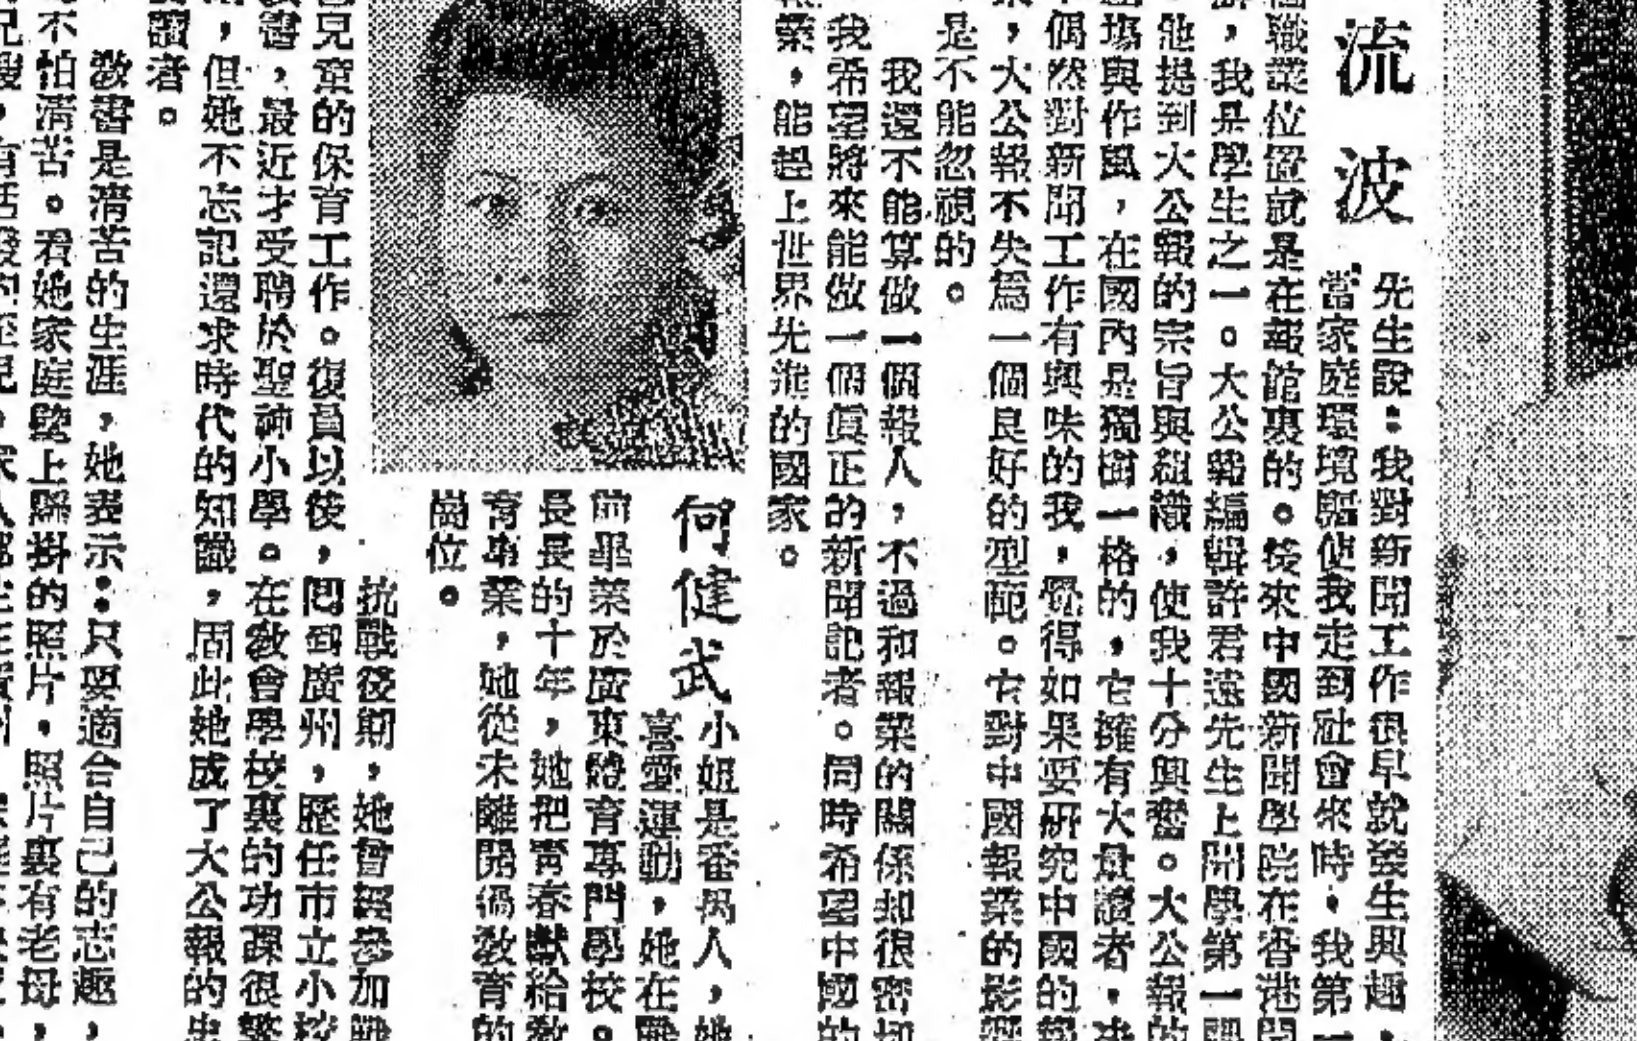 流波
先生說：我對新聞工作很早就發生興趣，
當家庭環境驅使我走到社會來時，我第一
個職業位置就是在報館裏的。後來中國新聞學院在香港開
，我是學生之一。大公報編輯許君遠先生上開學第一課
他提到大公報的宗旨與組織，使我十分興奮。大公報的
立場與作風，在國內是獨樹一格的，它擁有大量讀者，
偶然對新聞工作有興味的我，覺得如果要研究中國的報
業，大公報不失爲一個良好的型範。它對中國報業的影響
是不能忽視的。
我還不能算做一個報人，不過和報業的關係却很密切
我希望將來能做一個眞正的新聞記者。同時希望中國的
報業，能趕上世界先進的國家。
何健武
小姐是番禺人，她
喜愛運動，她在戰
前畢業於廣東體育專門學校。
長長的十年，她把靑春獻給敎
育事業，她從未離開過敎育的
崗位。
抗戰後期，她曾經參加戰
兒童的保育工作。復員以後，回到廣州，歷任市立小校
書，最近才受聘於聖神小學。在敎會學校裏的功課很繁
，但她不忘記還求時代的知識，因此她成了大公報的忠
實讀者。
敎書是淸苦的生涯，她表示：只要適合自己的志趣，
不怕淸苦。看她家庭壁上縣掛的照片，照片裏有老母，